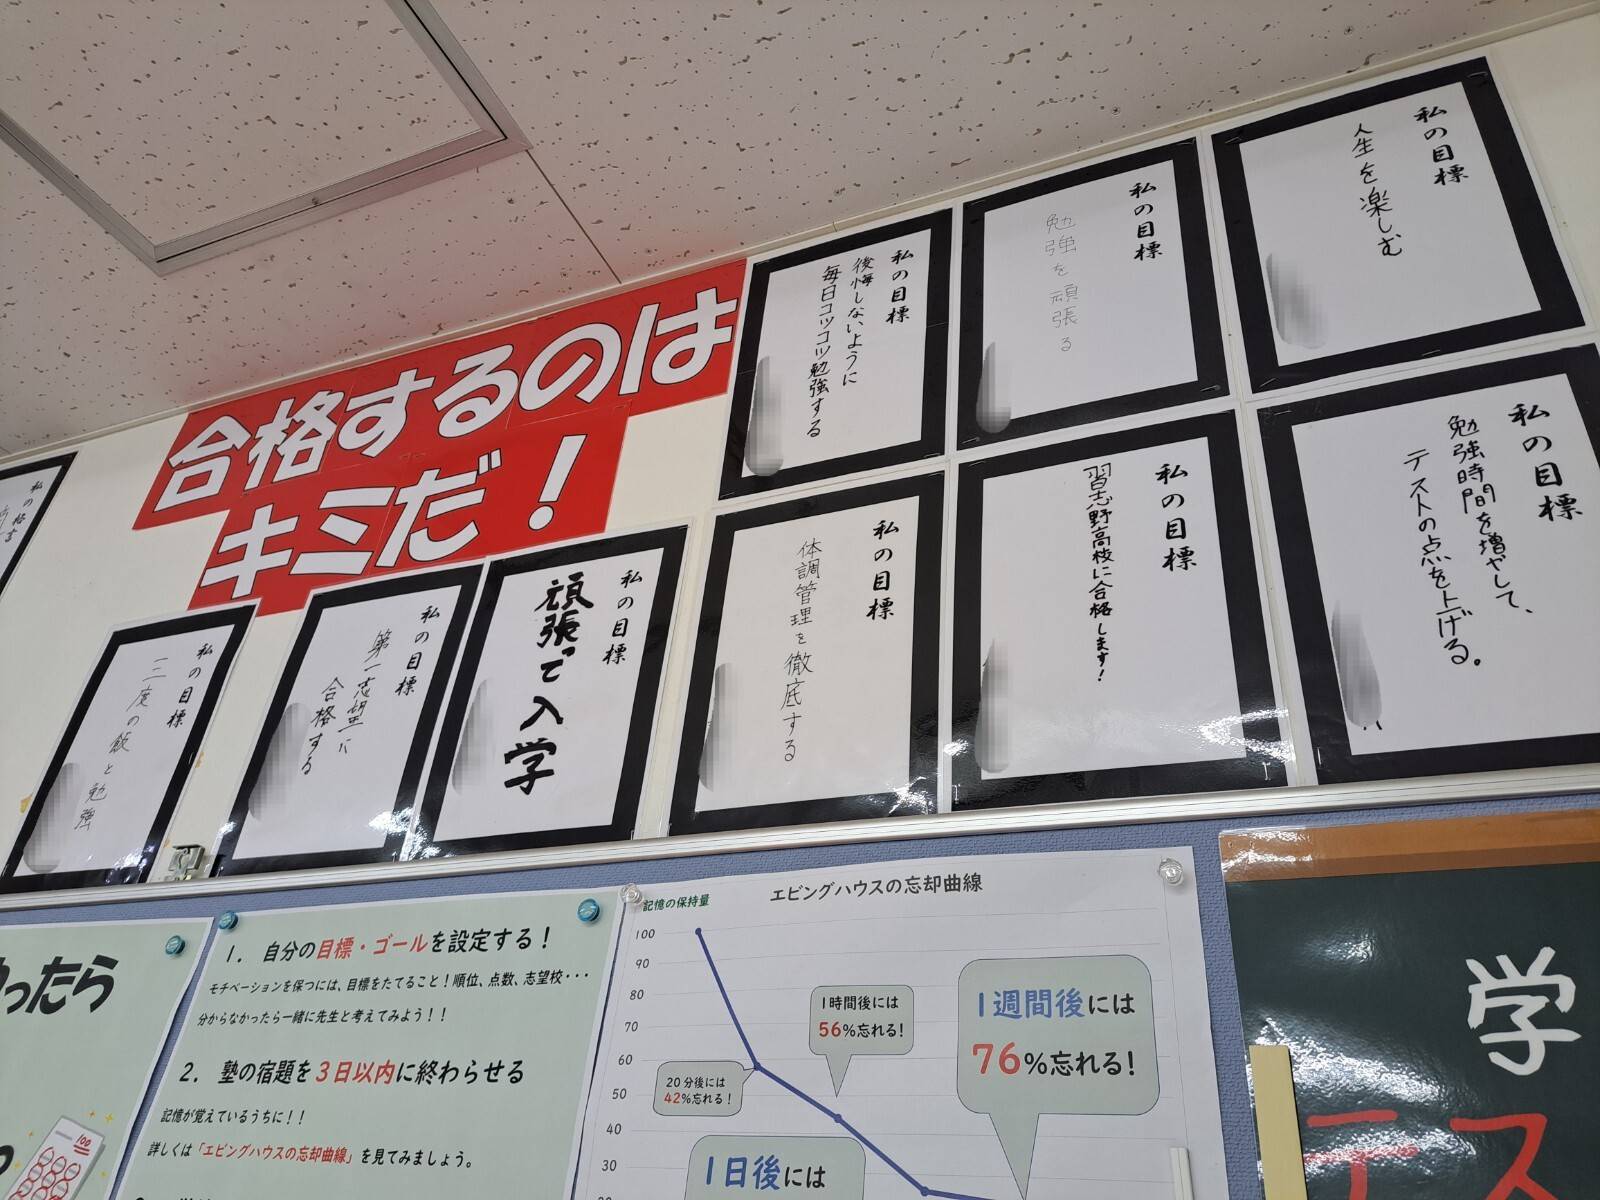 合格するのは
キミだ！
私の目標
人生を楽しむ
私の目標
勉強を頑張る
私の目標
後悔しないように
毎日コツコツ勉強する
私の目標
勉強時間を増やして、
テストの点を上げる。
私の目標
習志野高校に合格します！
私の目標
体調管理を徹底する
私の目標
頑張って入学
私の目標
第一志望に
合格する
私の目標
三度の飯と勉強
ったら
1. 自分の目標・ゴールを設定する！
モチベーションを保つには、目標をたてること！順位、点数、志望校・・・
分からなかったら一緒に先生と考えてみよう！！
2. 塾の宿題を3日以内に終わらせる
記憶が覚えているうちに！！
詳しくは「エビングハウスの忘却曲線」を見てみましょう。
100
エビングハウスの忘却曲線
記憶の保持量
100
90
80
70
60
50
40
30
20分後には
42%忘れる！
1時間後には
56%忘れる！
1日後には
1週間後には
76%忘れる！
学
テス